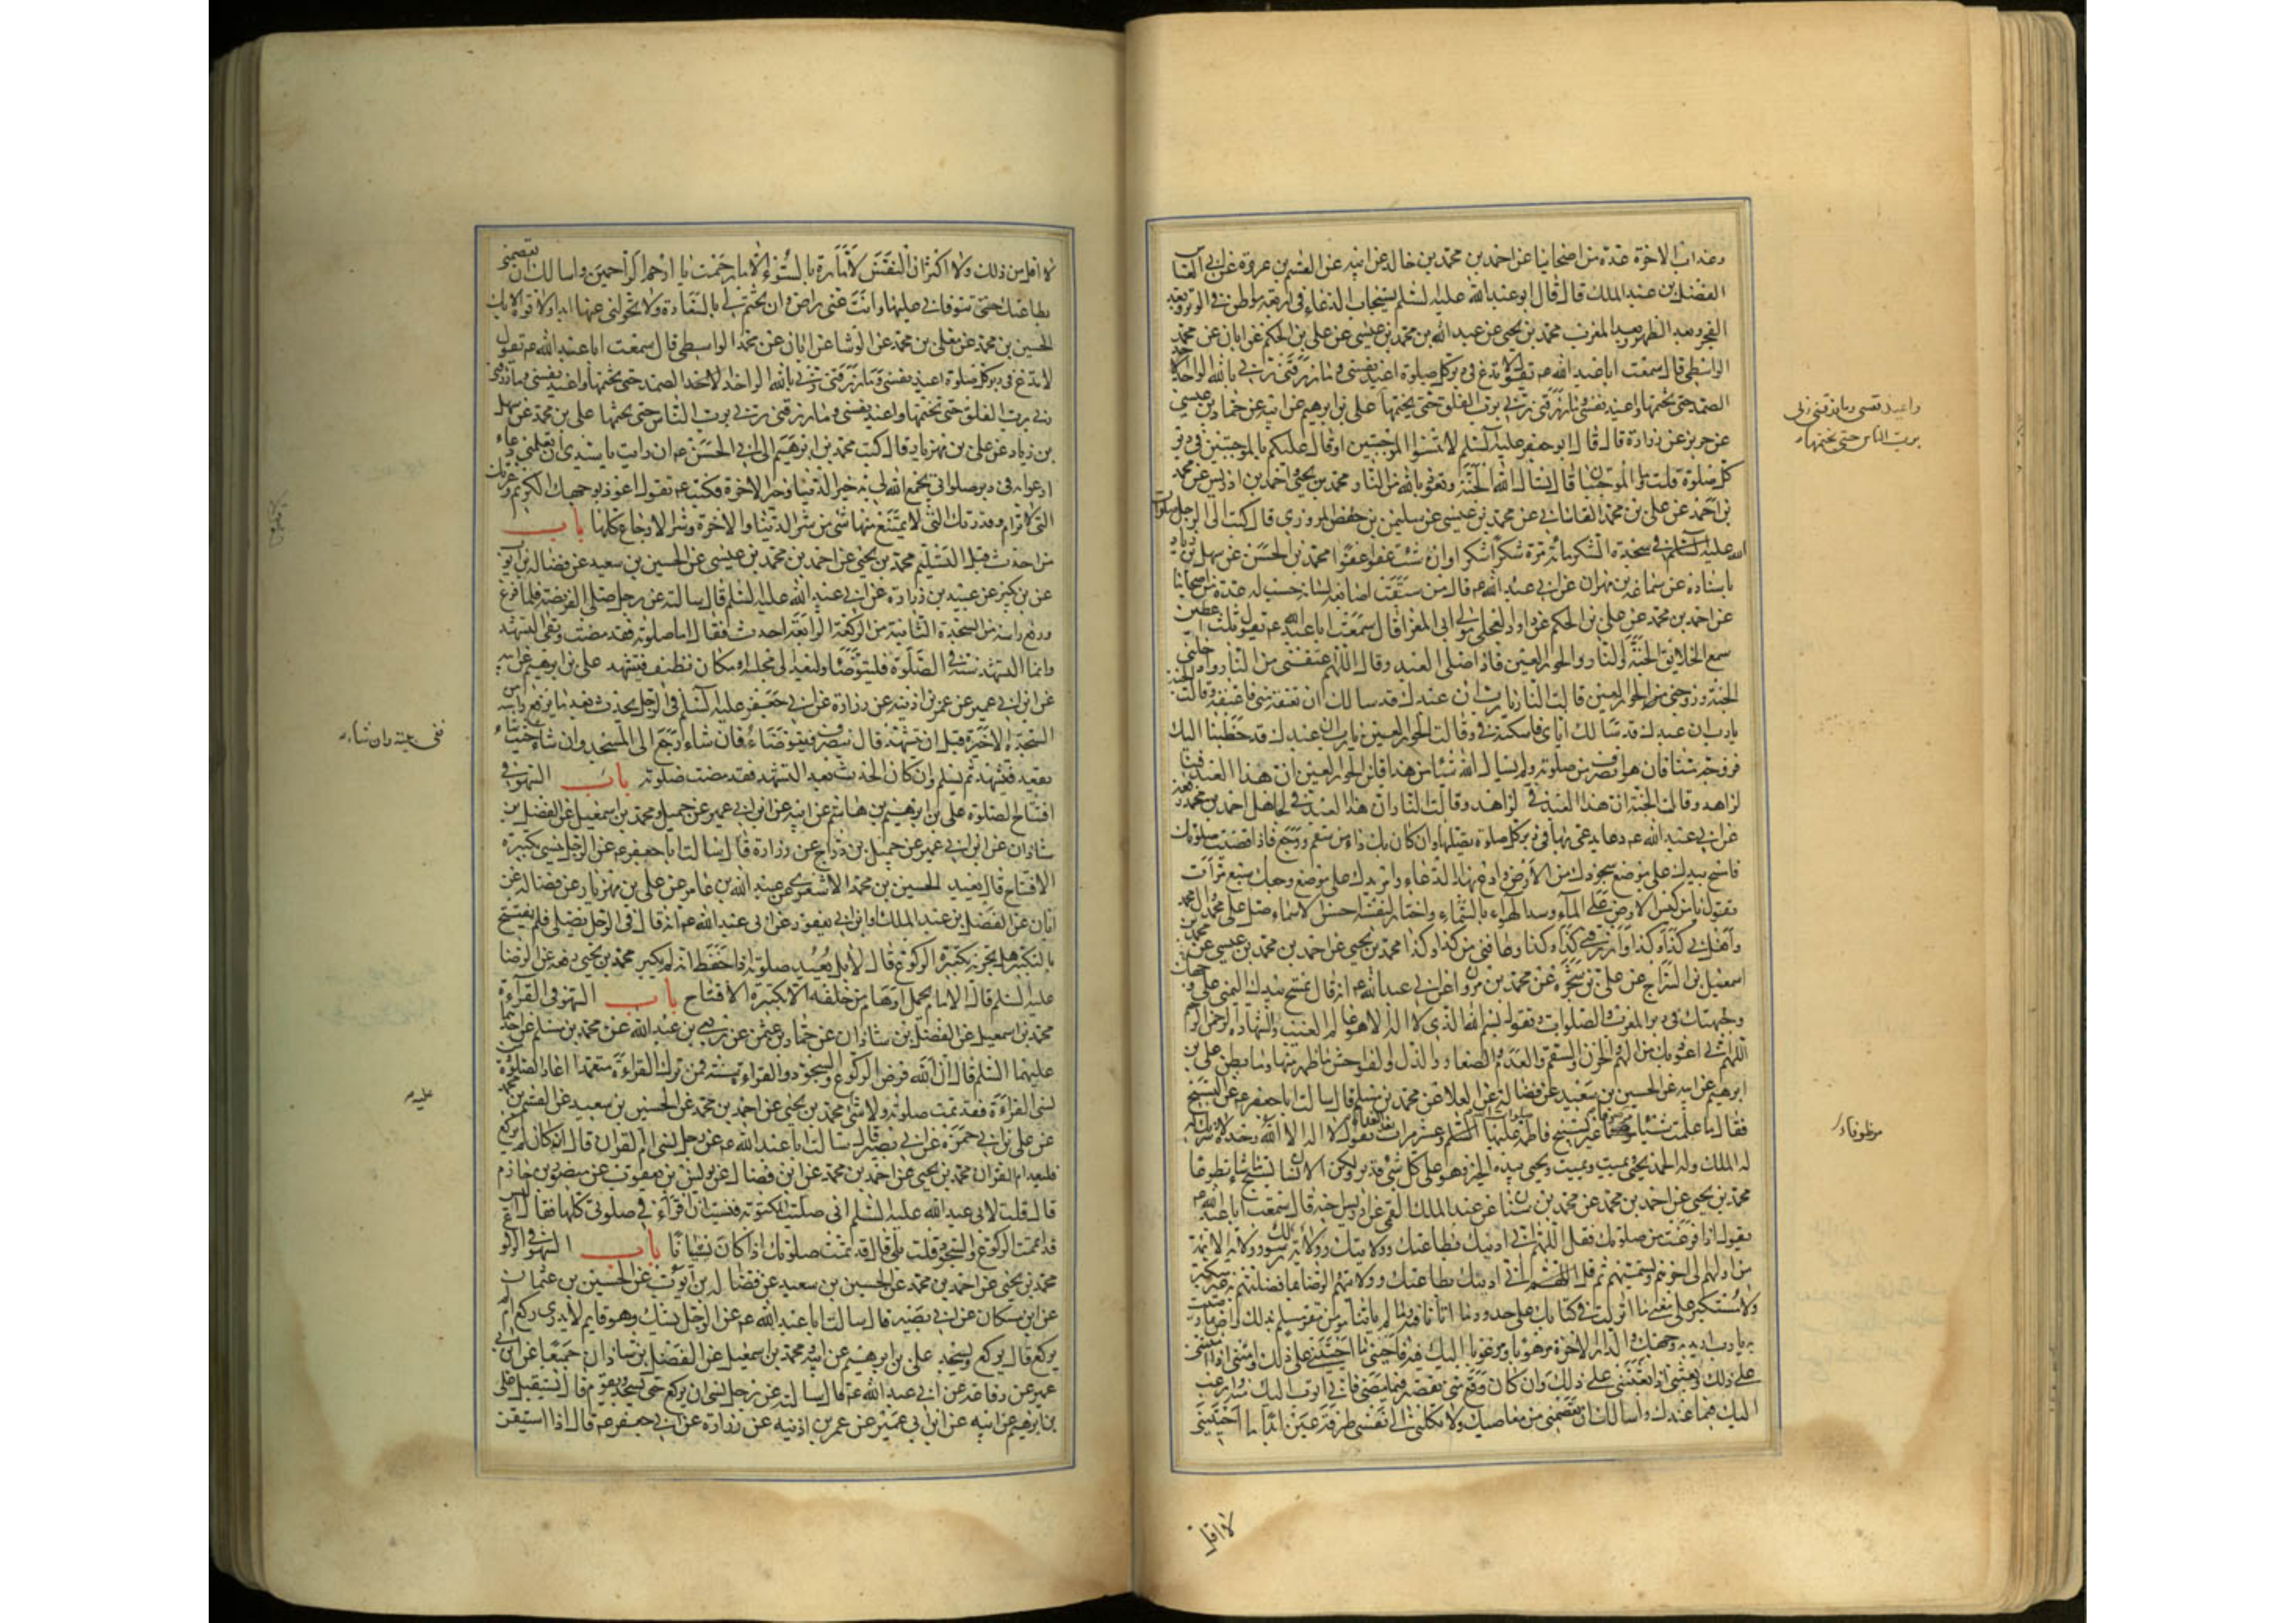 وعذاب الاخرة عدة من اصحابنا عن احمد بن محمد بن خالد عن ابيه عن القسم بن عروة عن ابي العباس
الفضل بن عبد الملك قال قال ابو عبد الله عليه السلم يستجاب الدعاء في اربعة مواطن في الوتر وبعد
الفجر وبعد الظهر وبعد المغرب محمد بن يحيى عن عبد الله بن محمد بن عيسى عن علي بن الحكم عن ابان عن محمد
الواسطي قال سمعت ابا عبد الله عم يقول لا تدع في دبر كل صلوة اعيذ نفسي وما رزقني ربي بالله الواحد
الصمد حتى تختمها واعيذ نفسي وما رزقني ربي برب الفلق حتى تختمها علي بن ابرهيم عن ابيه عن حماد بن عيسى
واعيذ نفسي وما رزقني ربي
برب الناس حتى تختمها
عن حريز عن زرارة قال قال ابو جعفر عليه السلم لا تنسوا الموجبتين او قال عليكم بالموجبتين في دبر
كل صلوة قلت وما الموجبتان قال يسال الله الجنة وتعوذ بالله من النار محمد بن يحيى واحمد بن ادريس عن محمد
بن احمد عن علي بن محمد القاساني عن محمد بن عيسى عن سليمن بن حفص المروزي قال كتب الى الرجل صلوات
الله عليه في سجدة الشكر مائة مرة شكرا شكرا وان شئت عفوا عفوا محمد بن الحسن عن سهل بن زياد
باسناده عن سماعة بن مهران عن ابي عبد الله عم قال من سبقت اصابعه لسانه حسب له عدة من اصحابنا
عن احمد بن محمد عن علي بن الحكم عن داود العجلي مولى ابي المغرا قال سمعت ابا عبد الله عم يقول ثلث اعطين
سمع الخلايق الجنة والنار والحور العين فاذا صلى العبد وقال اللهم اعتقني من النار وادخلني
الجنة وزوجني من الحور العين قالت النار يا رب ان عبدك قد سالك ان تعتقه مني فاعتقه وقالت الجنة
يا رب ان عبدك قد سالك اياي فاسكنه في وقالت الحور العين يا رب ان عبدك قد خطبنا اليك
فزوجه منا فان هو انصرف من صلوته ولم يسال الله شيئا من هذا قلن الحور العين ان هذا العبد فينا
لزاهد وقالت الجنة ان هذا العبد في لزاهد وقالت النار ان هذا العبد في لجاهل احمد بن محمد رفعه
عن ابي عبد الله عم دعا يدعى به في دبر كل صلوة تصليها وان كان بك داء من سقم ووجع فاذا قضيت صلوتك
فامسح بيدك على موضع سجودك من الارض وادع بهذا الدعاء وامر يدك على موضع وجعك سبع مرات
تقول يا من كبس الارض على الماء وسد الهواء بالسماء واختار لنفسه احسن الاسماء صل على محمد وال محمد
وافعل بي كذا وكذا وارزقني كذا وكذا وعافني من كذا وكذا محمد بن يحيى عن احمد بن محمد بن عيسى عن محمد بن
اسمعيل بن السراج عن علي بن شجرة عن محمد بن مروان عن ابي عبد الله عم انه قال تمسح بيدك اليمنى على جبهتك
ووجهك في دبر المغرب والصلوات وتقول بسم الله الذي لا اله الا هو عالم الغيب والشهادة الرحمن الرحيم
اللهم اني اعوذ بك من الهم والحزن والسقم والعدم والصغار والذل والفواحش ما ظهر منها وما بطن علي بن
ابرهيم عن ابيه عن الحسين بن سعيد عن فضالة عن العلا عن محمد بن مسلم قال سالت ابا جعفر عم عن التسبيح
فقال ما علمت شيئا موظفا غير تسبيح فاطمة عليها السلم وعشر مرات بعد الغداة تقول لا اله الا الله وحده لا شريك له
موظوفا
له الملك وله الحمد يحيي ويميت ويميت ويحيي بيده الخير وهو على كل شيء قدير ولكن الانسان يسبح ما شاء تطوعا
محمد بن يحيى عن احمد بن محمد عن محمد بن سنان عن عبد الملك القمي عن ادريس اخيه قال سمعت ابا عبد الله عم
يقول اذا فرغت من صلوتك فقل اللهم اني ادينك بطاعتك وولايتك وولاية رسولك وولاية الائمة
من اولهم الى اخرهم وتسميهم ثم قل اللهم اني ادينك بطاعتك وولايتهم والرضا بما فضلتهم به غير متكبر
ولا مستكبر على معنى ما انزلت في كتابك على حدود ما اتانا فيه وما لم ياتنا مؤمن مقر مسلم بذلك راض بما رضيت
به يا رب اريد به وجهك والدار الاخرة مرهوبا ومرغوبا اليك فيه فاحيني ما احييتني على ذلك وامتني اذا امتني
على ذلك وابعثني اذا بعثتني على ذلك وان كان مني تقصير فيما مضى فاني اتوب اليك منه وارغب
اليك فيما عندك واسالك ان تعصمني من معاصيك ولا تكلني الى نفسي طرفة عين ابدا ما احييتني
لا اقل
لا اقل من ذلك ولا اكثر ان النفس لامارة بالسوء الا ما رحمت يا ارحم الراحمين واسالك ان تعصمني
بطاعتك حتى تتوفاني عليها وانت عني راض وان تختم لي بالسعادة ولا تحولني عنها ابدا ولا قوة الا بك
الحسين بن محمد عن معلى بن محمد عن الوشا عن ابان عن محمد الواسطي قال سمعت ابا عبد الله عم يقول
لا تدع في دبر كل صلوة اعيذ نفسي وما رزقني ربي بالله الواحد الاحد الصمد حتى تختمها واعيذ نفسي وما رزقني
ربي برب الفلق حتى تختمها واعيذ نفسي وما رزقني ربي برب الناس حتى تختمها علي بن محمد عن سهل
بن زياد عن علي بن مهزيار قال كتب محمد بن ابرهيم الى ابي الحسن عم ان رايت يا سيدي ان تعلمني دعاء
ادعو به في دبر صلواتي يجمع الله لي به خير الدنيا وخير الاخرة فكتب عم تقول اعوذ بوجهك الكريم وعزتك
التي لا ترام وقدرتك التي لا يمتنع منها شي من شر الدنيا والاخرة وشر الاوجاع كلها باب
من احدث قبل التسليم محمد بن يحيى عن احمد بن محمد بن عيسى عن الحسين بن سعيد عن فضالة بن ايوب
عن بن بكير عن عبيد بن زرارة عن ابي عبد الله عليه السلم قال سالته عن رجل صلى الفريضة فلما فرغ
ورفع راسه من السجدة الثانية من الركعة الرابعة احدث فقال اما صلوته فقد مضت وبقي التشهد
وانما التشهد سنة في الصلوة فليتوضا وليعد الى مجلسه او مكان نظيف فيتشهد علي بن ابرهيم عن ابيه
عن ابن ابي عمير عن عمر بن اذينه عن زرارة عن ابي جعفر عليه السلم في الرجل يحدث بعد ما يرفع راسه من
السجدة الاخيرة قبل ان يتشهد قال ينصرف فيتوضاء فان شاء رجع الى المسجد وان شاء حيث شاء
ففي بيته وان شاء
يقعد فيتشهد ثم يسلم وان كان الحدث بعد التشهد فقد مضت صلوته باب السهو في
افتتاح الصلوة علي بن ابرهيم بن هاشم عن ابيه عن ابن ابي عمير عن جميل ومحمد بن اسمعيل عن الفضل بن
شاذان عن ابن ابي عمير عن جميل بن دراج عن زرارة قال سالت ابا جعفر عم عن الرجل ينسى تكبيرة
الافتتاح قال يعيد الحسين بن محمد الاشعري عن عبد الله بن عامر عن علي بن مهزيار عن فضالة عن
ابان عن الفضل بن عبد الملك او ابن ابي يعفور عن ابي عبد الله عم انه قال في الرجل يصلي فلم يفتتح
بالتكبير هل يجزيه تكبيرة الركوع قال لا بل يعيد صلوته اذا حفظ انه لم يكبر محمد بن يحيى رفعه عن الرضا
عليه السلم قال الامام يحمل اوهام من خلفه الا تكبيرة الافتتاح باب السهو في القراءة
محمد بن اسمعيل عن الفضل بن شاذان عن حماد بن عيسى عن ربعي بن عبد الله عن محمد بن مسلم عن احدهما
عليهما السلم قال ان الله فرض الركوع والسجود والقراءة سنة فمن ترك القراءة متعمدا اعاد الصلوة
نسي القراءة فقد تمت صلوته ولا شي محمد بن يحيى عن احمد بن محمد عن الحسين بن سعيد عن القسم بن محمد
عليه
عن علي بن ابي حمزة عن ابي بصير قال سالت ابا عبد الله عم عن رجل نسي ام القران قال ان كان لم يركع
فليعد ام القران محمد بن يحيى عن احمد بن محمد عن ابن فضال عن يونس بن يعقوب عن منصور بن حازم
قال قلت لابي عبد الله عليه السلم اني صليت المكتوبة فنسيت ان اقراء في صلوتي كلها فقال اليس
قد اتممت الركوع والسجود قلت بلى قال قد تمت صلوتك اذا كان نسيانا باب السهو في الركوع
محمد بن يحيى عن احمد بن محمد عن الحسين بن سعيد عن فضالة بن ايوب عن الحسين بن عثمان
عن ابن مسكان عن ابي بصير قال سالت ابا عبد الله عم عن الرجل يشك وهو قايم لا يدري ركع ام لم
يركع قال يركع ويسجد علي بن ابرهيم عن ابيه ومحمد بن اسمعيل عن الفضل بن شاذان جميعا عن ابن ابي
عمير عن رفاعة عن ابي عبد الله عم قال سالته عن رجل نسي ان يركع حتى يسجد ويقوم قال يستقبل علي
بن ابرهيم عن ابيه عن ابن ابي عمير عن عمر بن اذينه عن زرارة عن ابي جعفر عم قال اذا استيقن